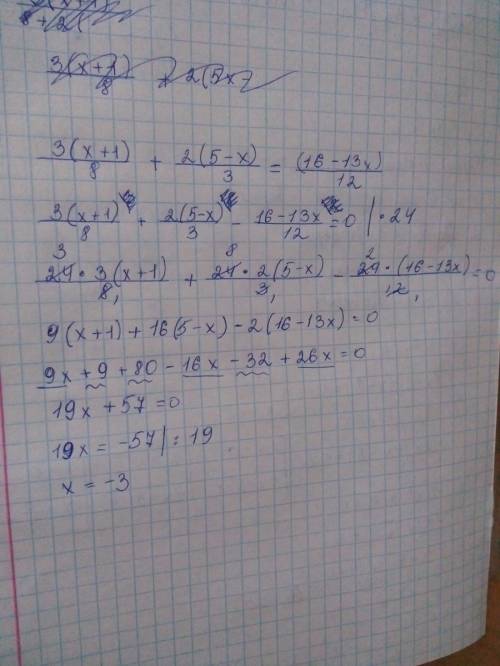 3(x+1)/8 + 2(5x-
3(x+1)/8 + 2(5-x)/3 = (16-13x)/12
3(x+1)/8 + 2(5-x)/3 - 16-13x/12 = 0 | · 24
24·3(x+1)/8 + 24·2(5-x)/3 - 24·(16-13x)/12 = 0
9(x+1)+16(5-x)-2(16-13x)=0
9x+9+80-16x-32+26x=0
19x+57=0
19x=-57|:19
x=-3